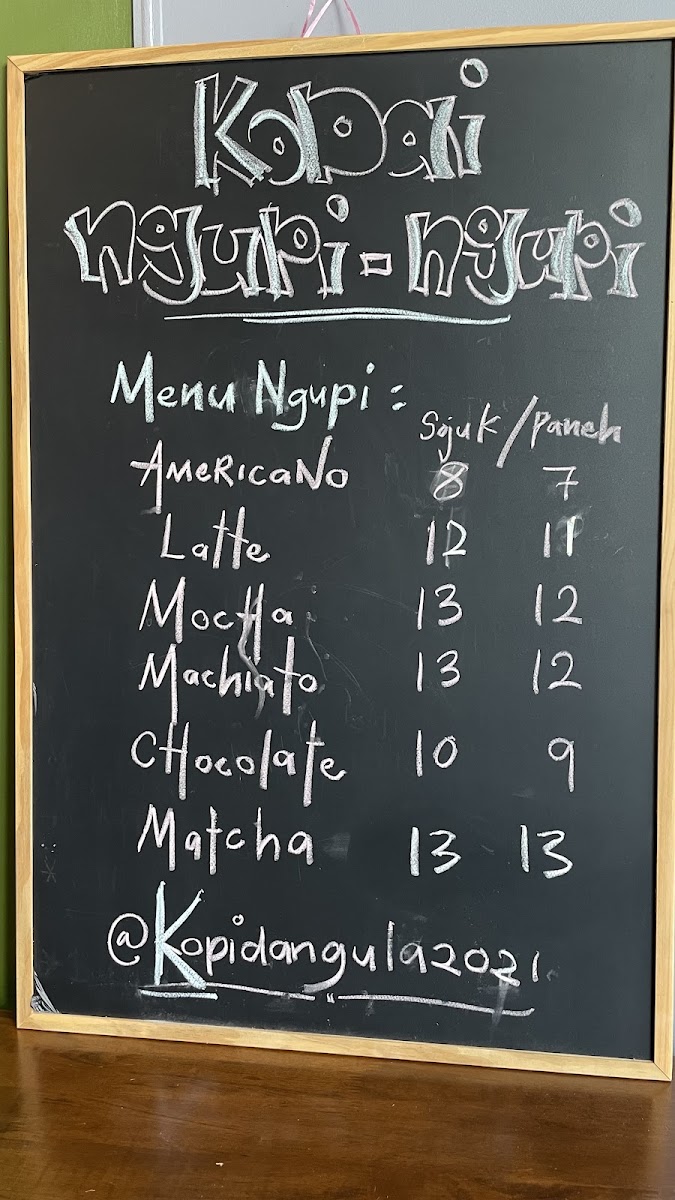 Kopai
ngupi-ngupi
Menu Ngupi:
Sojuk/Paneh
Americano 8 7
Latte 12 11
Mocha 13 12
Machiato 13 12
Chocolate 10 9
Matcha 13 13
@Kopidangula2021